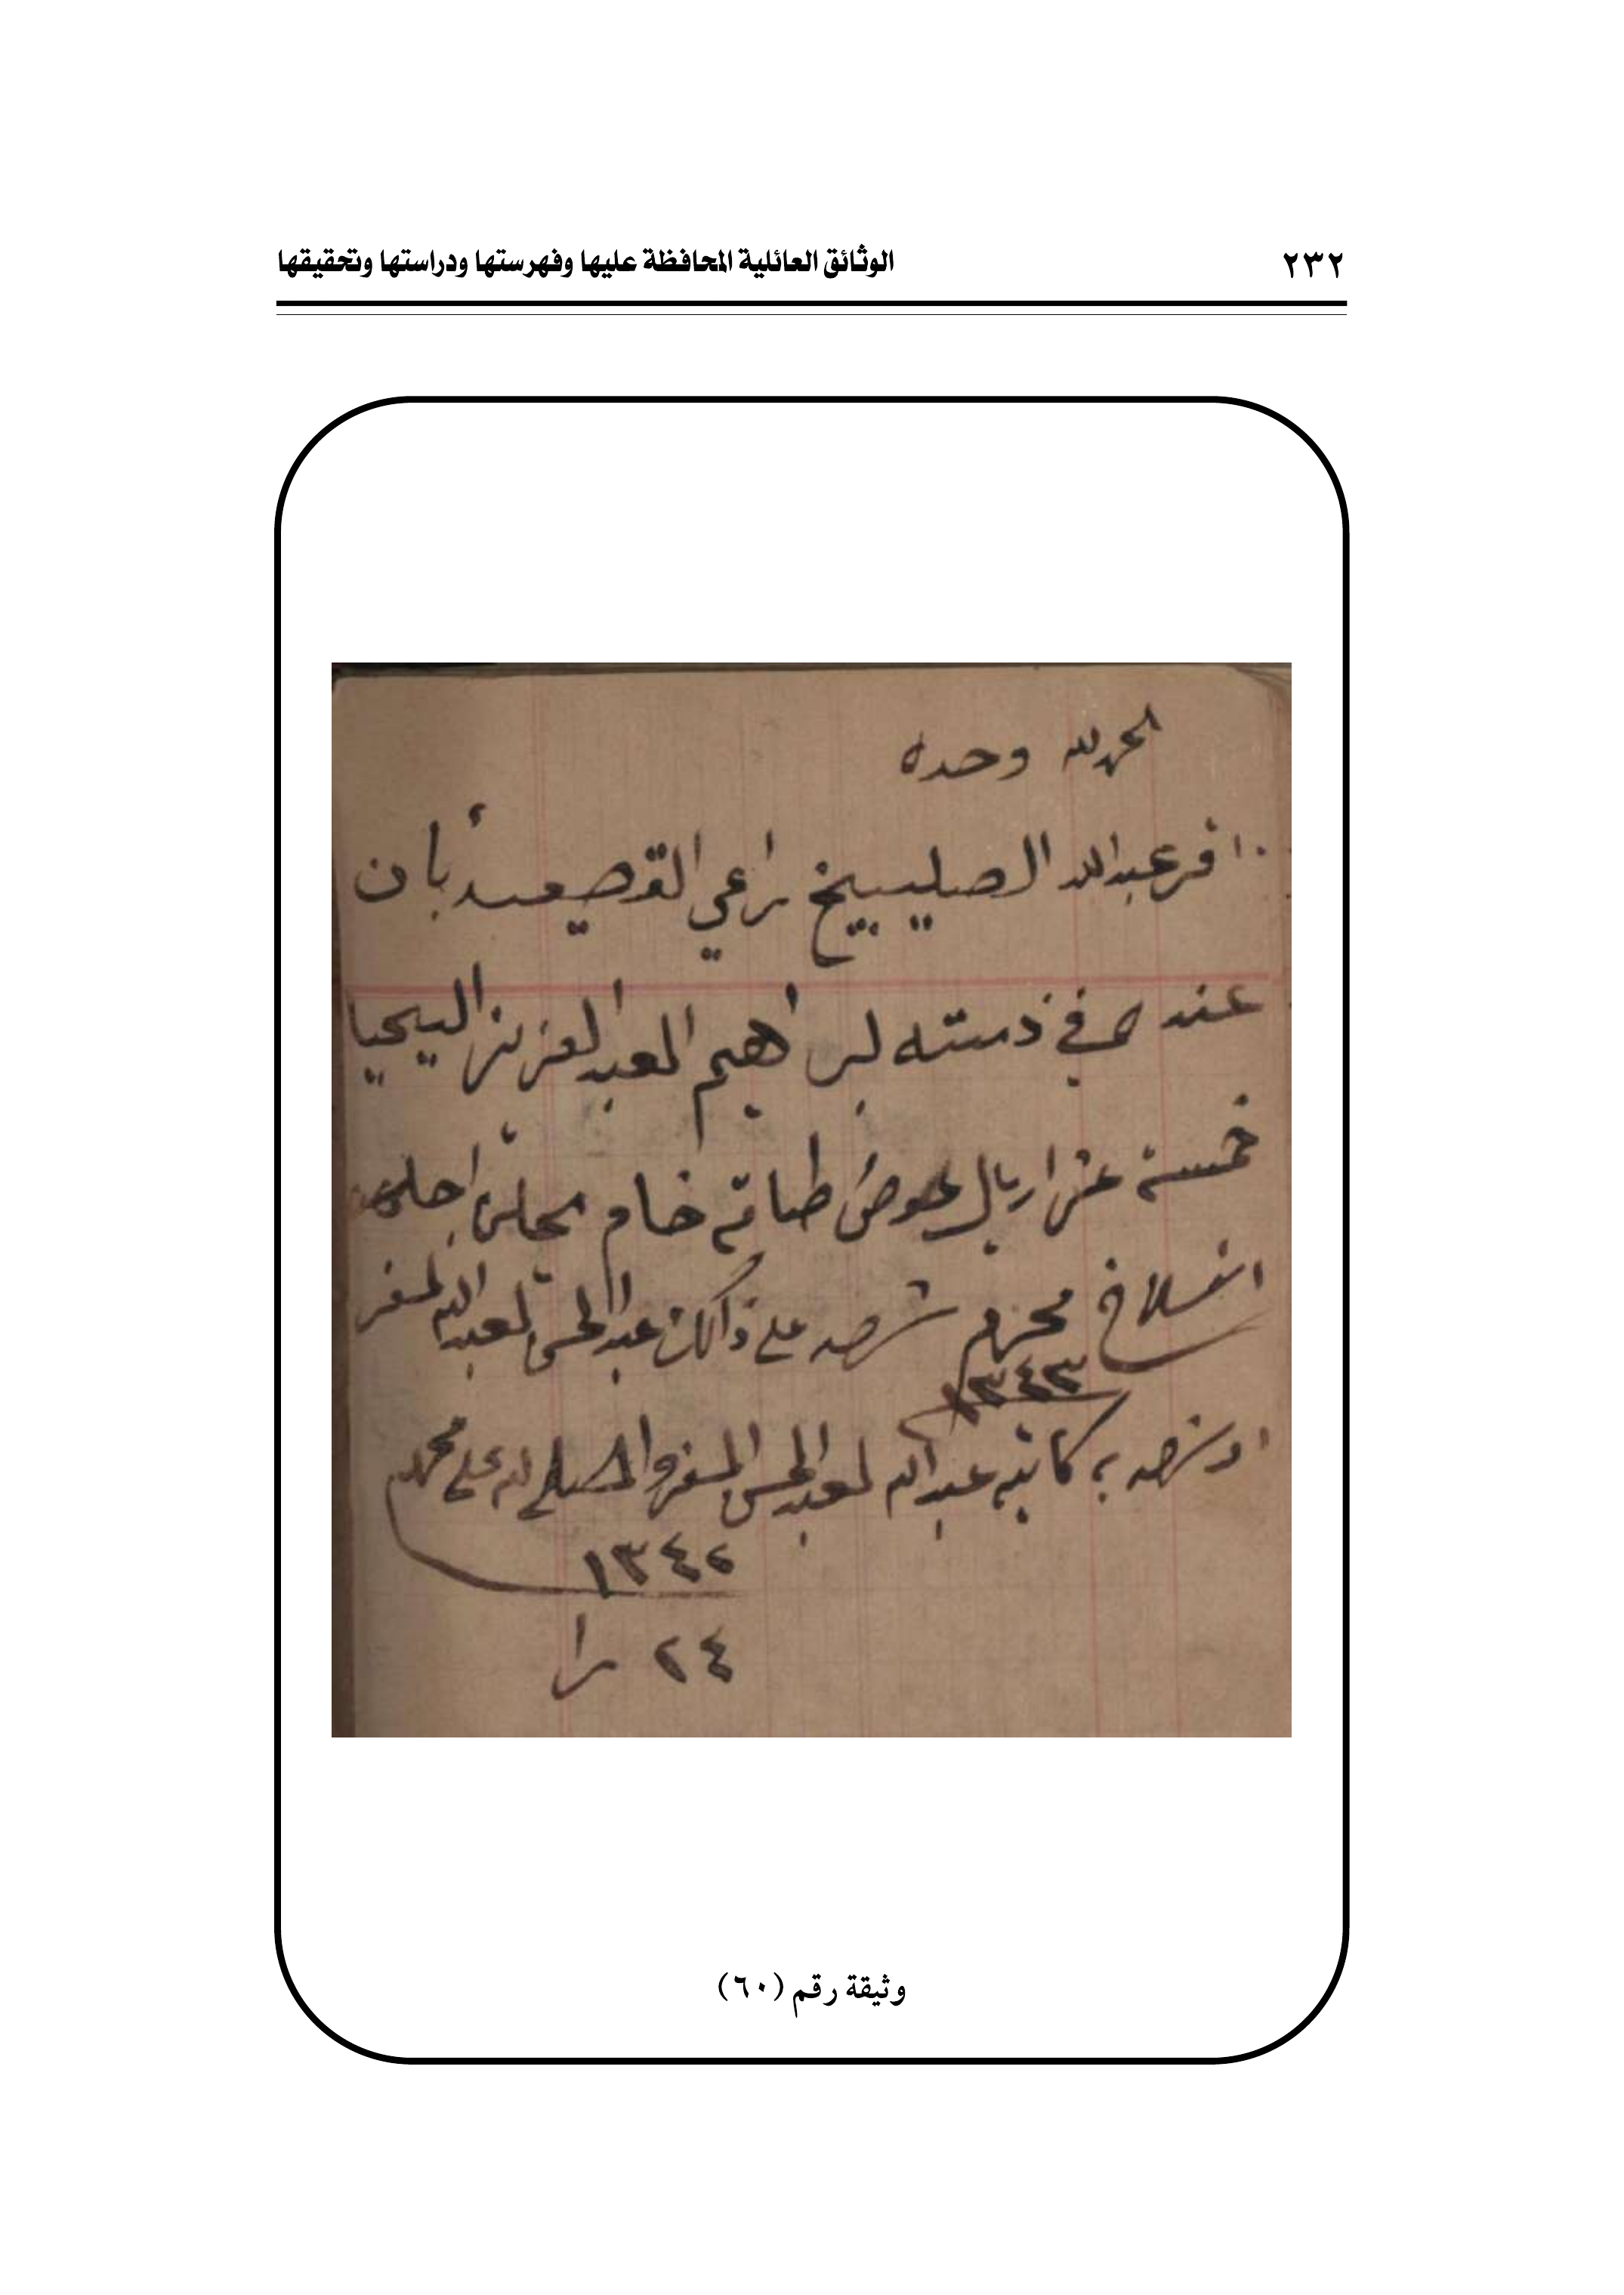 ٢٣٢ الوثائق العائلية المحافظة عليها وفهرستها ودراستها وتحقيقها
الحمد لله وحده
اقر عبدالله الصليبيخ راعي القصيعه بأن
عنده في ذمته لبراهيم العبدالعزيز اليحيا
خمسة عشر اريال عوض طاقة خام يحلن اجلهن
انسلاخ محرم شهد على ذالك عبدالمحسن العبدالله المسفر
١٣٤٣
وشهد به كاتبه عبدالله العبدالمحسن المسفر وصلى الله على محمد
١٣٤٢
٢٤ را
وثيقة رقم (٦٠)